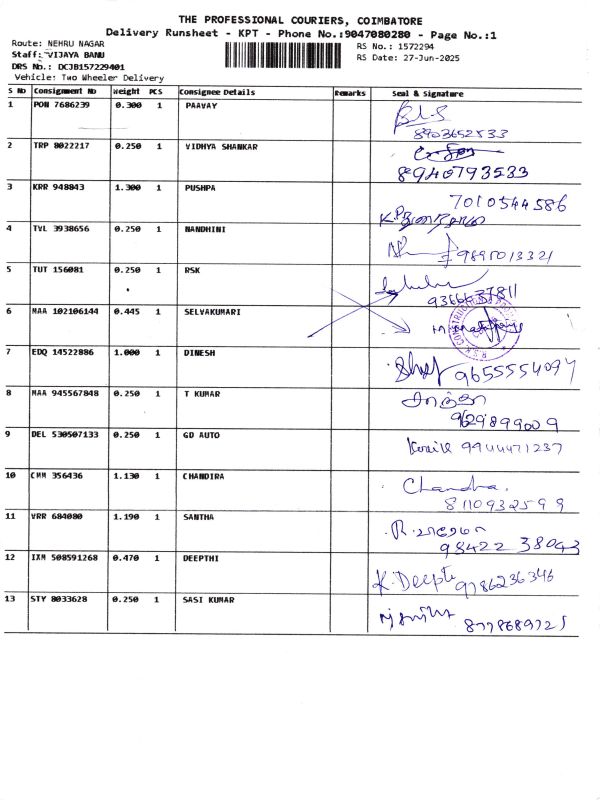 THE PROFESSIONAL COURIERS, COIMBATORE
Delivery Runsheet - KPT - Phone No.:9047080280 - Page No.:1
Route: NEHRU NAGAR RS No.: 1572294
Staff: VIJAYA BANU RS Date: 27-Jun-2025
DRS No.: DCJB157229401
Vehicle: Two Wheeler Delivery
S No Consignment No Weight PCS Consignee Details Remarks Seal & Signature
1 PON 7686239 0.300 1 PAAVAY
8903652533
2 TRP 8022217 0.250 1 VIDHYA SHANKAR
8940793533
3 KRR 948843 1.300 1 PUSHPA
7010544586
4 TYL 3938656 0.250 1 NANDHINI
9895013321
5 TUT 156081 0.250 1 RSK
9366637811
6 MAA 102106144 0.445 1 SELVAKUMARI
7 EDQ 14522886 1.000 1 DINESH
9655554097
8 MAA 945567848 0.250 1 T KUMAR
சாந்தா
9629899009
9 DEL 530507133 0.250 1 GD AUTO
9944471237
10 CMM 356436 1.130 1 CHANDIRA
Chandra.
8110932599
11 VRR 684080 1.190 1 SANTHA
98422 38043
12 IXM 508591268 0.470 1 DEEPTHI
K. Deepti 9786236346
13 STY 8033628 0.250 1 SASI KUMAR
8778689725